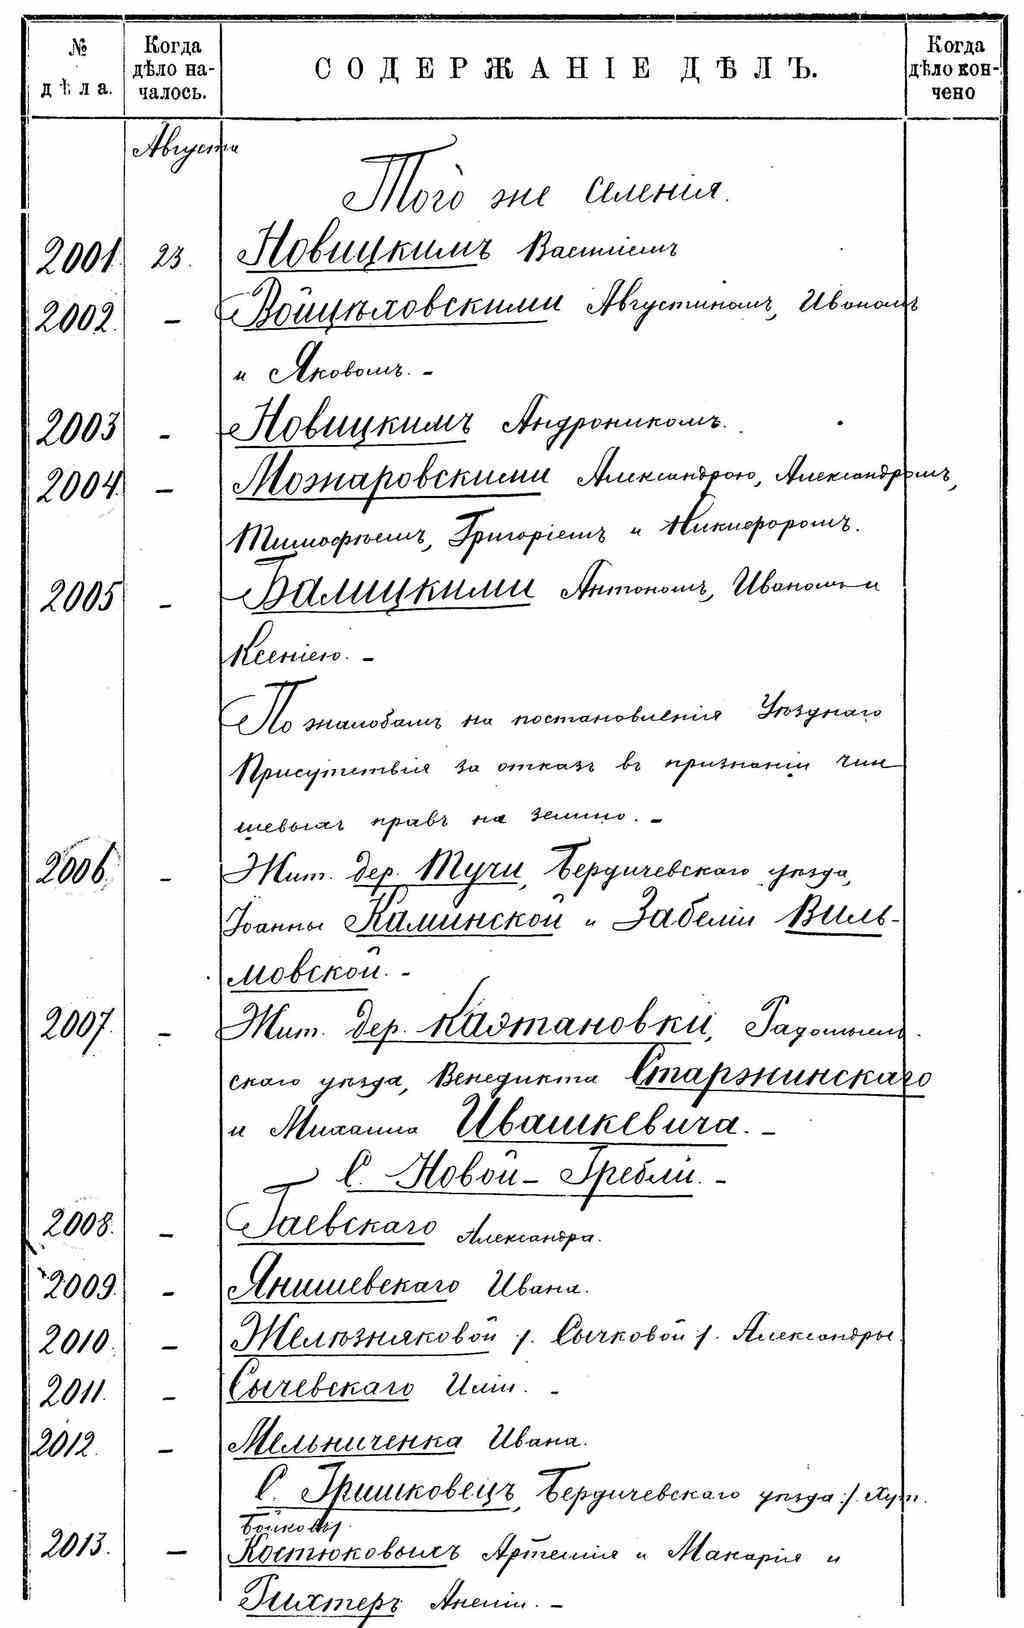 № дѣла.
Когда дѣло на-
чалось.
СОДЕРЖАНІЕ ДѢЛЪ.
Когда дѣло кон-
чено
Августа
Того же селенія.
2001. 23. Новицкимъ Василіемъ
2002. – Войцѣховскими Августиномъ, Иваномъ
и Яковомъ. –
2003 – Новицкимъ Андроникомъ.
2004. – Можаровскими Александрою, Александромъ,
Тимофѣемъ, Григоріемъ и Никифоромъ.
2005 – Балицкими Антономъ, Иваномъ и
Ксеніею. –
По жалобамъ на постановленія Уѣзднаго
Присутствія за отказъ въ признаніи чин
шевыхъ правъ на землю. –
2006. – Жит. дер. Тучи, Бердичевскаго уѣзда,
Іоанны Каминской и Забеліи Виль-
мовской. –
2007. – Жит. дер. Каэтановки, Радомысль-
скаго уѣзда, Венедикта Старжинскаго
и Михаила Ивашкевича. –
С. Новой – Гребли. –
2008. – Гаевскаго Александра.
2009. – Янишевскаго Ивана.
2010. – Желюзняковой /. Сычковой /. Александры.
2011. – Сычевскаго Иліи. –
2012. – Мельниченка Ивана.
С. Гришковецъ, Бердичевскаго уѣзда :/. Хут.
Бойковъ/.
2013. – Костюковыхъ Артемія и Макарія и
Рихтеръ Анеліи. –